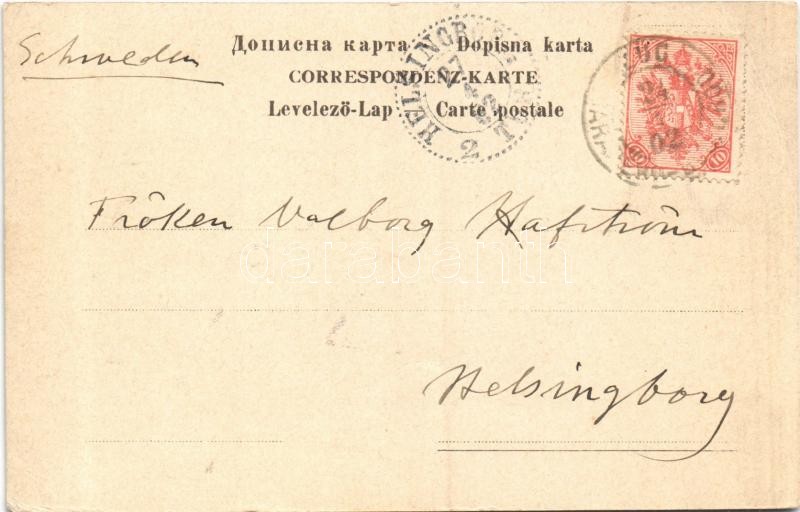 Schweden
Дописна карта Dopisna karta
CORRESPONDENZ-KARTE
Levelező-Lap Carte postale
HELSINGBORG
27
2
10 10
02
Fröken Valborg Hafström
www.darabanth.com
Helsingborg